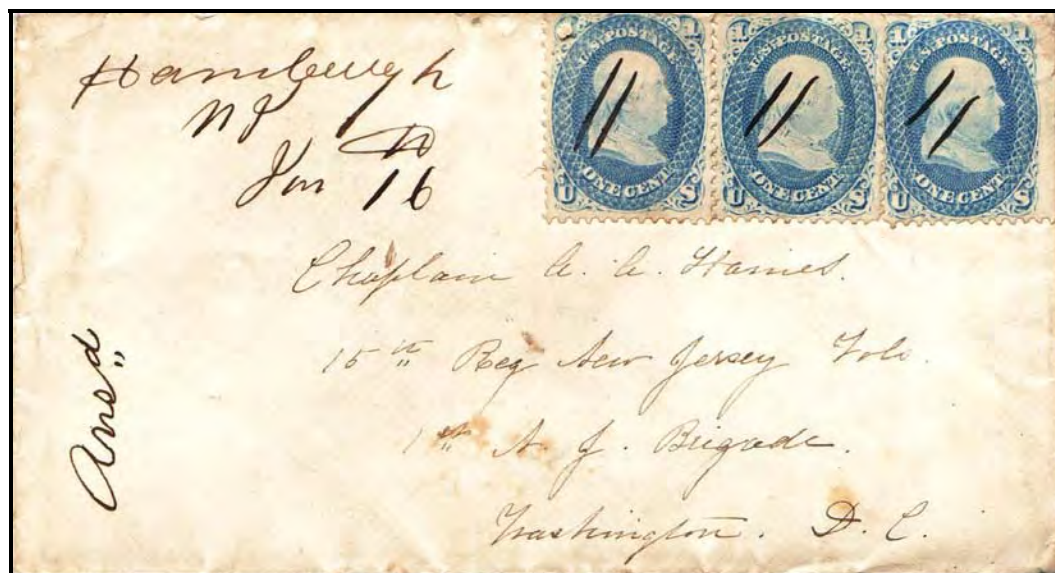 Hamburgh
NJ
Jan 16
U.S. POSTAGE
1 1
ONE CENT
U S
U.S. POSTAGE
1 1
ONE CENT
U S
U.S. POSTAGE
1 1
ONE CENT
U S
Chaplain A. A. Haines.
15th Reg New Jersey Vols.
1st N. J. Brigade.
Washington. D. C.
Ansd